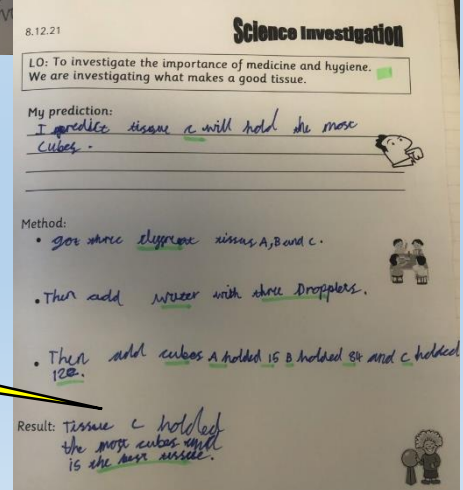 8.12.21
Science Investigation
LO: To investigate the importance of medicine and hygiene.
We are investigating what makes a good tissue.
My prediction:
I predict tissue c will hold the most
cubes.
Method:
• got three different tissus A, B and C.
• Then add water with three Dropplers.
• Then add cubes A holded 15 B holded 84 and C holded
122.
Result: Tissue C holded
the most cubes and
is the best tissue.